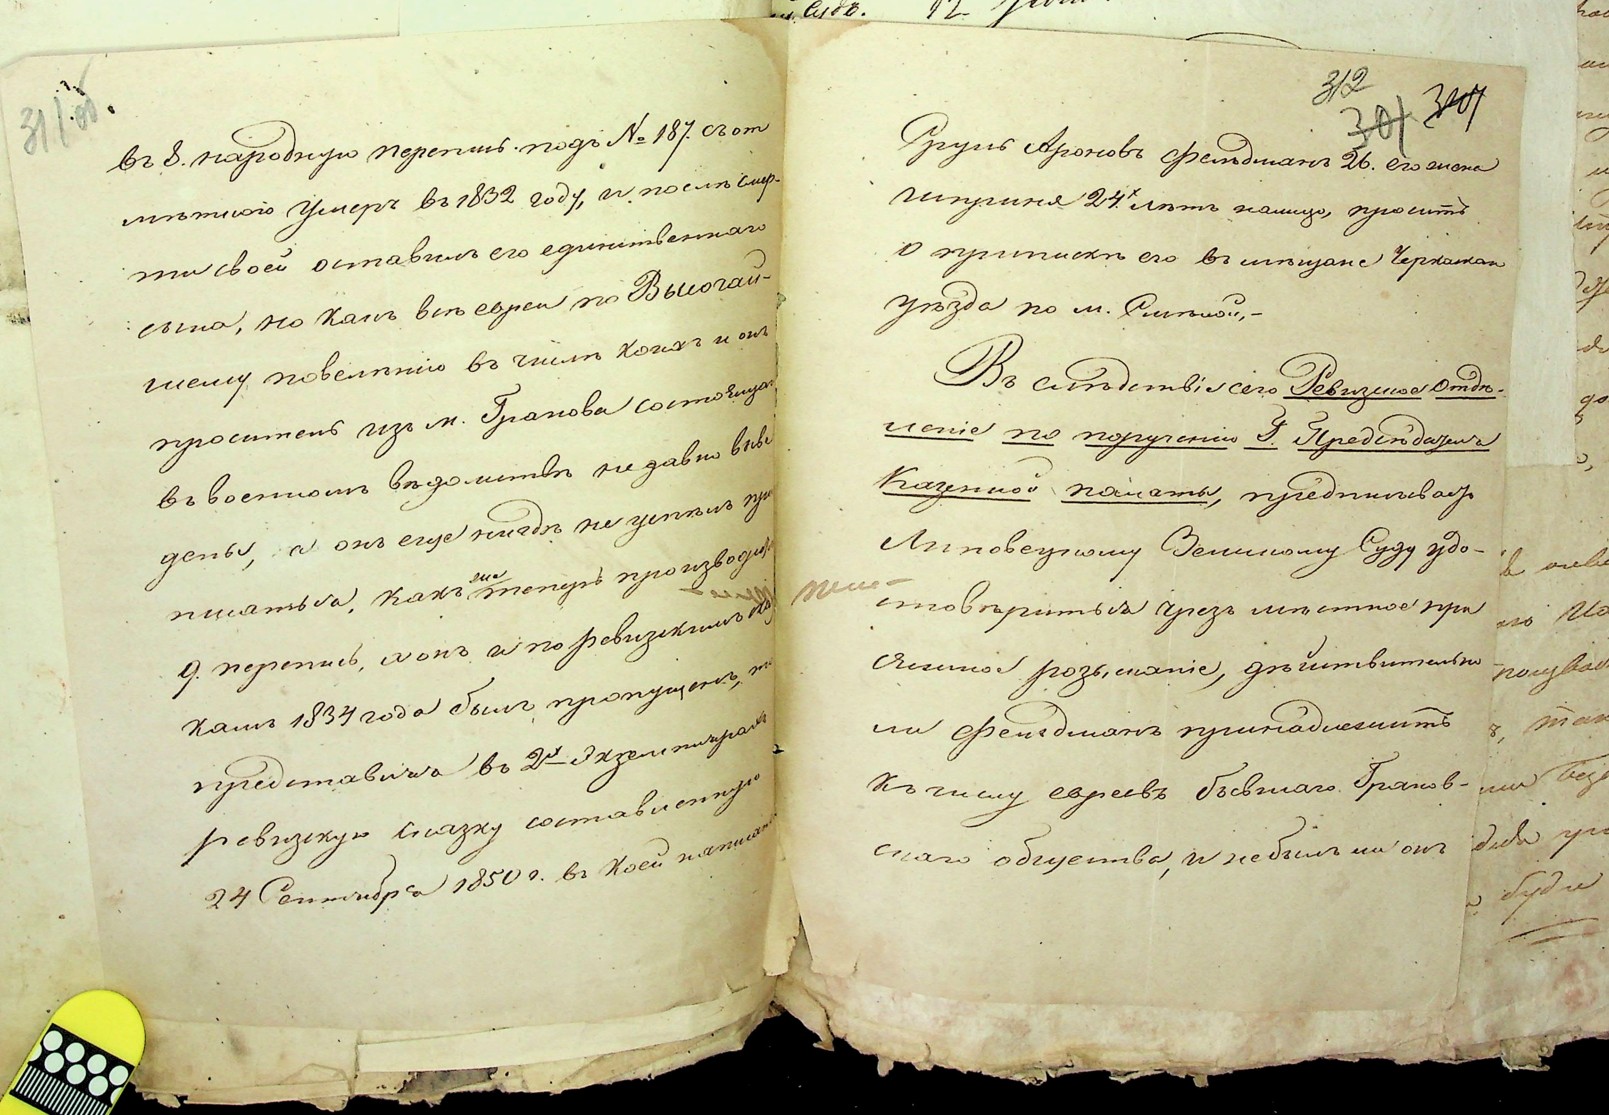 311 об.
въ 8. народную перепись подъ № 187. съ от
мѣткою умеръ въ 1832 году, и послѣ смер-
ти своей оставилъ его единственнаго
сына, но какъ всѣ евреи по Высочай-
шему повелѣнію въ числѣ коихъ и онъ
проситель изъ м. Гранова состоящаго
въ военномъ вѣдомствѣ недавно выве
дены, а онъ еще нигдѣ не успѣлъ при
писаться, какъ теперь производит
9. перепись, а онъ и по ревизскимъ
камъ 1834 года былъ пропущенъ, то
представилъ въ 2х экземплярахъ
ревизскую сказку составленную
24 Сентября 1850 г. въ коей написанъ
312
301
Ароновъ Фельдманъ 26. его жена
24х лѣтъ налицо, проситъ
о припискѣ его въ мѣщане Черкаскаго
уѣзда по м. Смѣлой,-
Въ слѣдствіе сего Ревизское Отдѣ-
леніе по порученію Г. Предсѣдателя
Казенной палаты, предписываетъ
Липовецкому Земскому Суду удо-
стовѣриться чрезъ мѣстное при
сяжное розысканіе, дѣйствительно
ли Фельдманъ принадлежитъ
къ числу евреевъ бывшаго Гранов-
скаго общества, и небылъ ли онъ